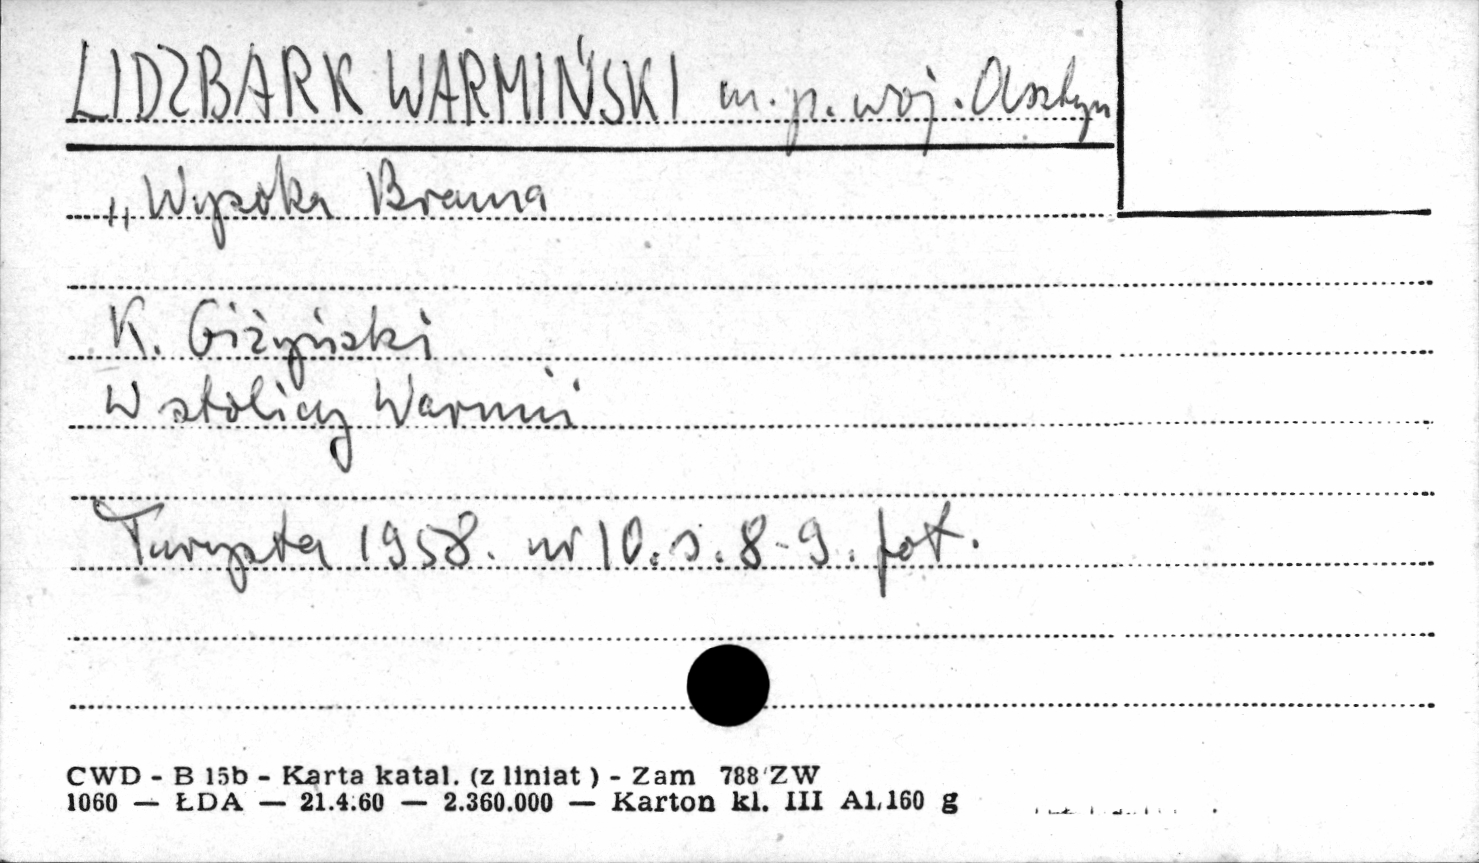 LIDZBARK WARMIŃSKI m. p. woj. Olsztyn
„Wysoka Brama
K. Giżyński
W stolicy Warmii
Turysta 1958. nr 10. s. 8-9. fot.
CWD - B 15b - Karta katal. (z liniat) - Zam 788 ZW
1060 — ŁDA — 21.4.60 — 2.360.000 — Karton kl. III A1, 160 g